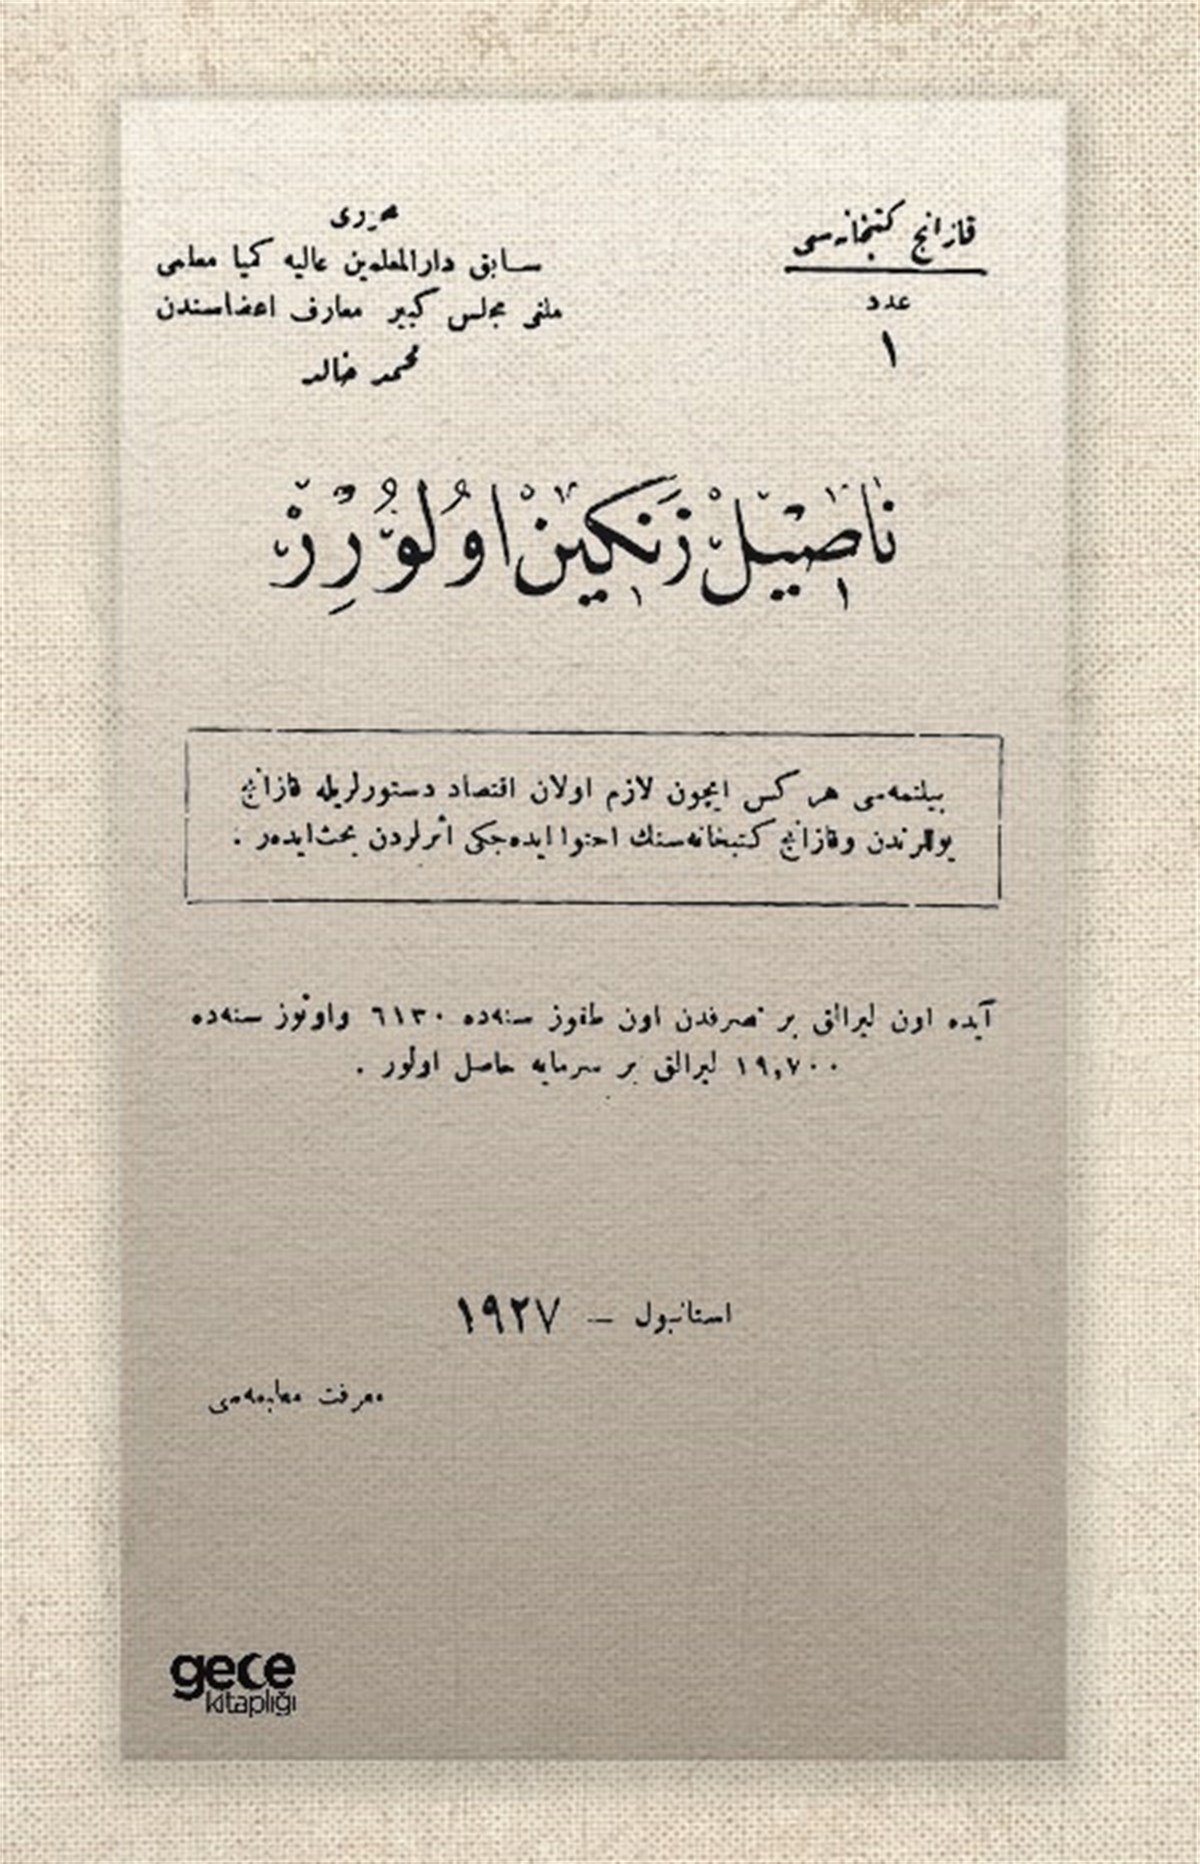 قازانج كتبخانه‌سی
عدد
١
محرری
سابق دارالمعلمین عالیه كیمیا معلمی
ملغی مجلس كبیر معارف اعضاسندن
محمد خالد
ناصیل زنكین اولورز
بیلنمه‌سی هر كس ایچون لازم اولان اقتصاد دستورلریله قازانج
یوللرندن وقازانج كتبخانه‌سنك احتوا ایده‌جكی اثرلردن بحث ایده‌ر .
آیده اون لیرالق بر تصرفدن اون طقوز سنه‌ده ٦١٣٠ واوتوز سنه‌ده
١٩,٧٠٠ لیرالق بر سرمایه حاصل اولور .
استانبول — ١٩٢٧
معرفت مطبعه‌سی
gece
kitaplığı